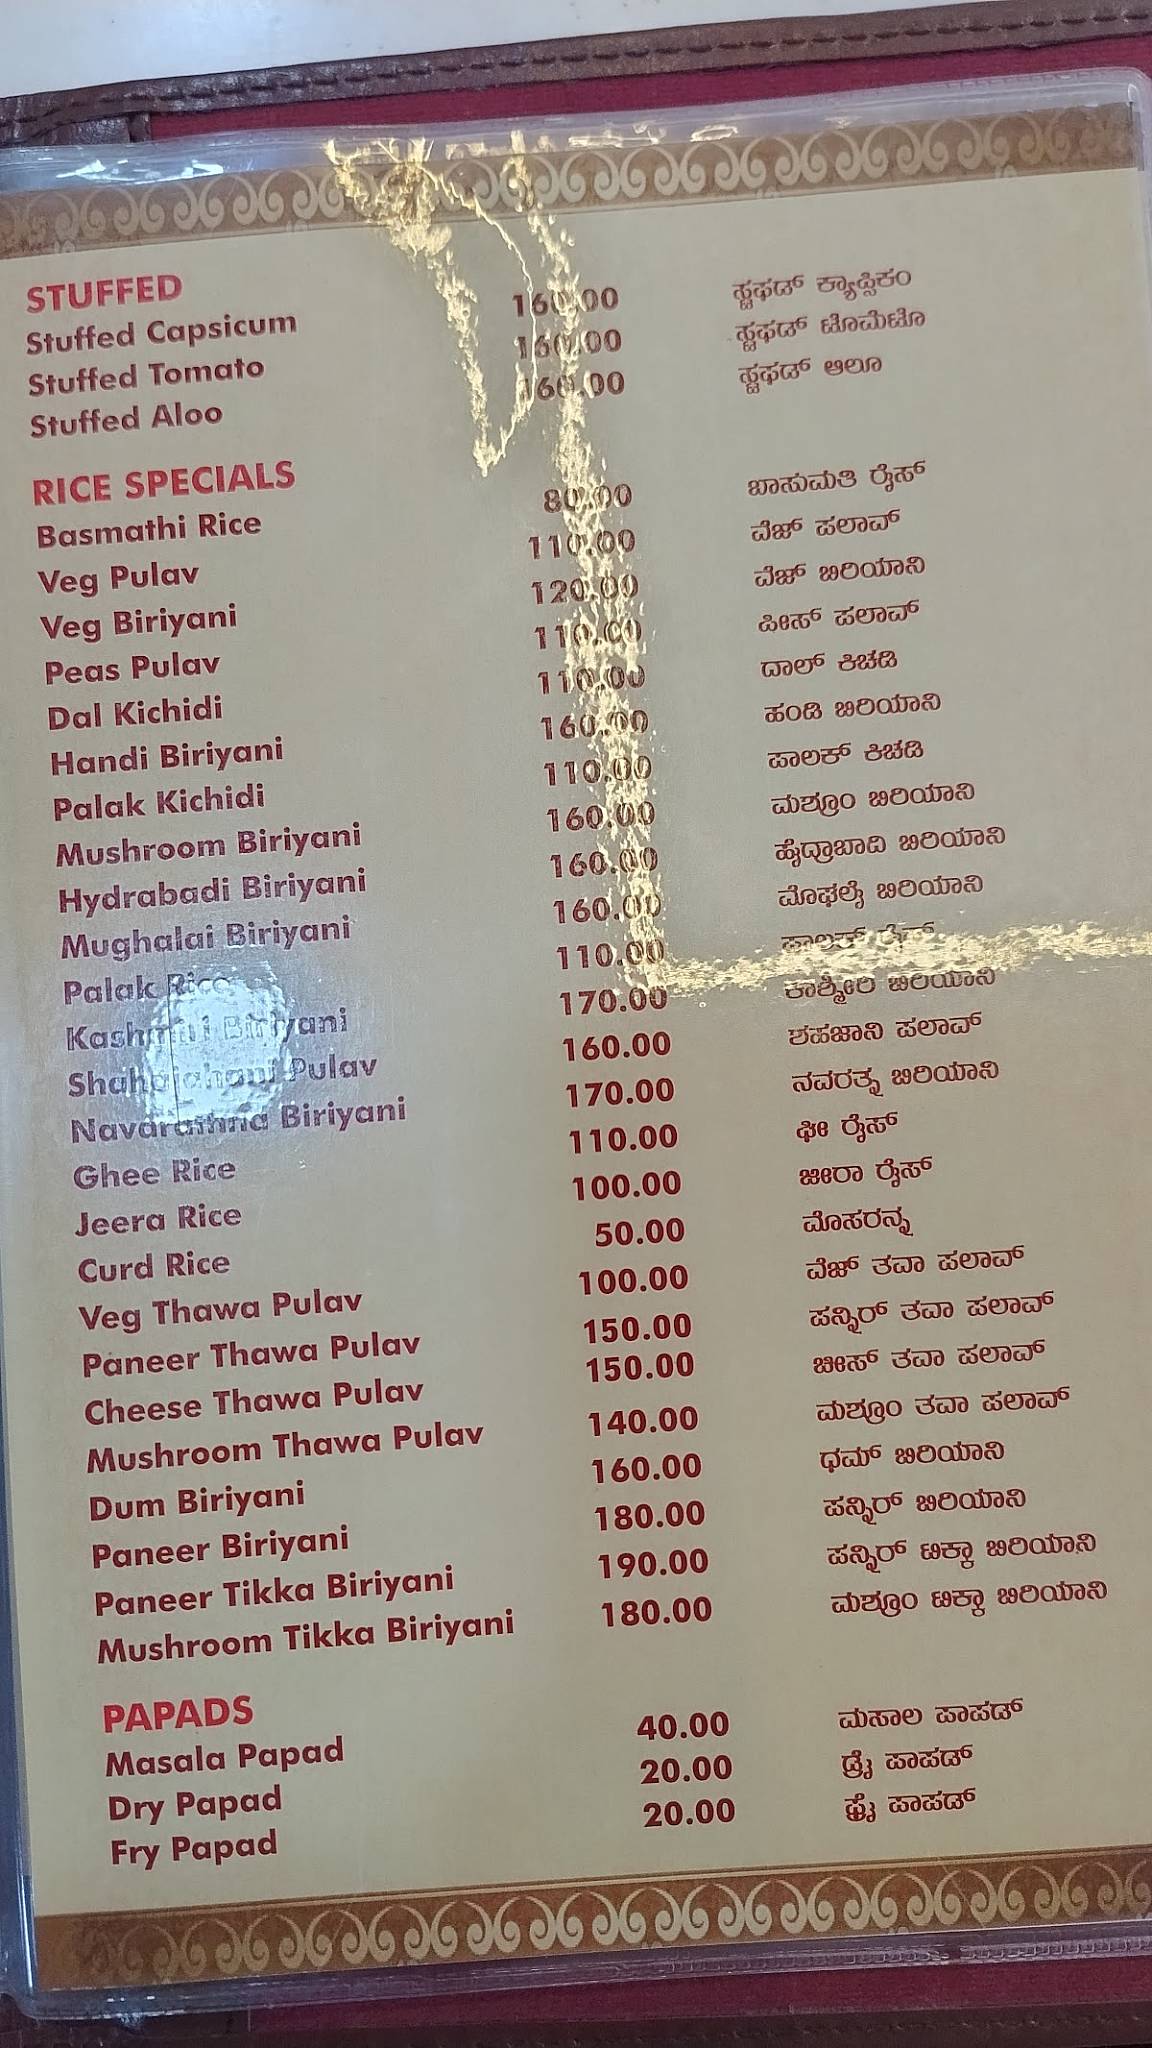 STUFFED
Stuffed Capsicum 160.00 ಸ್ಟಫಡ್ ಕ್ಯಾಪ್ಸಿಕಂ
Stuffed Tomato 160.00 ಸ್ಟಫಡ್ ಟೊಮೆಟೊ
Stuffed Aloo 160.00 ಸ್ಟಫಡ್ ಆಲೂ
RICE SPECIALS
Basmathi Rice 80.00 ಬಾಸುಮತಿ ರೈಸ್
Veg Pulav 110.00 ವೆಜ್ ಪಲಾವ್
Veg Biriyani 120.00 ವೆಜ್ ಬಿರಿಯಾನಿ
Peas Pulav 110.00 ಪೀಸ್ ಪಲಾವ್
Dal Kichidi 110.00 ದಾಲ್ ಕಿಚಡಿ
Handi Biriyani 160.00 ಹಂಡಿ ಬಿರಿಯಾನಿ
Palak Kichidi 110.00 ಪಾಲಕ್ ಕಿಚಡಿ
Mushroom Biriyani 160.00 ಮಶ್ರೂಂ ಬಿರಿಯಾನಿ
Hydrabadi Biriyani 160.00 ಹೈದ್ರಾಬಾದಿ ಬಿರಿಯಾನಿ
Mughalai Biriyani 160.00 ಮೊಘಲೈ ಬಿರಿಯಾನಿ
Palak Rice 110.00 ಪಾಲಕ್ ರೈಸ್
Kashmiri Biriyani 170.00 ಕಾಶ್ಮೀರಿ ಬಿರಿಯಾನಿ
Shahajahani Pulav 160.00 ಶಹಜಾನಿ ಪಲಾವ್
Navarathna Biriyani 170.00 ನವರತ್ನ ಬಿರಿಯಾನಿ
Ghee Rice 110.00 ಘೀ ರೈಸ್
Jeera Rice 100.00 ಜೀರಾ ರೈಸ್
Curd Rice 50.00 ಮೊಸರನ್ನ
Veg Thawa Pulav 100.00 ವೆಜ್ ತವಾ ಪಲಾವ್
Paneer Thawa Pulav 150.00 ಪನ್ನಿರ್ ತವಾ ಪಲಾವ್
Cheese Thawa Pulav 150.00 ಚೀಸ್ ತವಾ ಪಲಾವ್
Mushroom Thawa Pulav 140.00 ಮಶ್ರೂಂ ತವಾ ಪಲಾವ್
Dum Biriyani 160.00 ಧಮ್ ಬಿರಿಯಾನಿ
Paneer Biriyani 180.00 ಪನ್ನಿರ್ ಬಿರಿಯಾನಿ
Paneer Tikka Biriyani 190.00 ಪನ್ನಿರ್ ಟಿಕ್ಕಾ ಬಿರಿಯಾನಿ
Mushroom Tikka Biriyani 180.00 ಮಶ್ರೂಂ ಟಿಕ್ಕಾ ಬಿರಿಯಾನಿ
PAPADS
Masala Papad 40.00 ಮಸಾಲ ಪಾಪಡ್
Dry Papad 20.00 ಡ್ರೈ ಪಾಪಡ್
Fry Papad 20.00 ಫ್ರೈ ಪಾಪಡ್